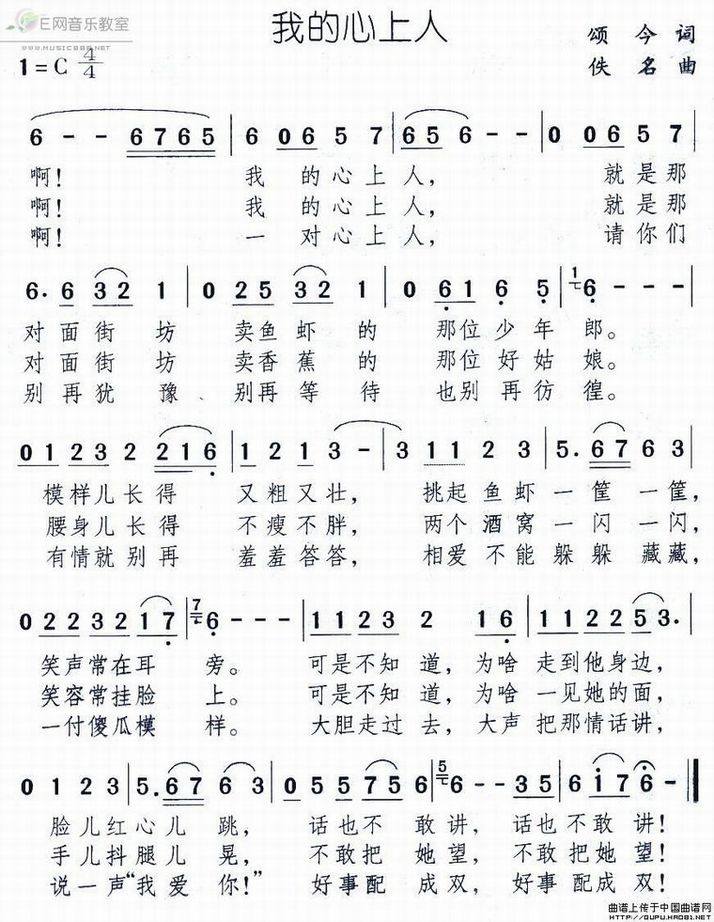 E网音乐教室
WWW.MUSIC888.NET
我的心上人
颂今 词
佚名 曲
1=C 4/4
6 - - 6765 | 6 0657 | 656 - - | 0 0657 |
啊! 我 的心上人, 就是那
啊! 我 的心上人, 就是那
啊! 一 对心上人, 请你们
6. 6 32 1 | 0 25 32 1 | 0 61 6 5 | 1 7 6 - - |
对面街坊 卖鱼虾的 那位少年郎。
对面街坊 卖香蕉的 那位好姑娘。
别再犹豫 别再等待 也别再彷徨。
0 1 2 3 2 2 1 6 | 1 2 1 3 - | 3 1 1 2 3 | 5. 6 7 6 3 |
模样儿长得 又粗又壮, 挑起鱼虾一筐一筐,
腰身儿长得 不瘦不胖, 两个酒窝一闪一闪,
有情就别再 羞羞答答, 相爱不能躲躲藏藏,
0 2 2 3 2 1 7 | 7 6 - - | 1 1 2 3 2 | 1 6 0 1 1 2 2 5 3. |
笑声常在耳旁。 可是不知道,为啥 走到他身边,
笑容常挂脸上。 可是不知道,为啥 一见她的面,
一付傻瓜模样。 大胆走过去,大声 把那情话讲,
0 1 2 3 | 5. 6 7 6 3 | 0 5 5 7 5 6 | 5 6 - - 3 5 | 6 1 7 6 - ‖
脸儿红心儿跳, 话也不敢讲, 话也不敢讲!
手儿抖腿儿晃, 不敢把她望, 不敢把她望!
说一声“我爱你!” 好事配成双, 好事配成双!
曲谱上传于中国曲谱网